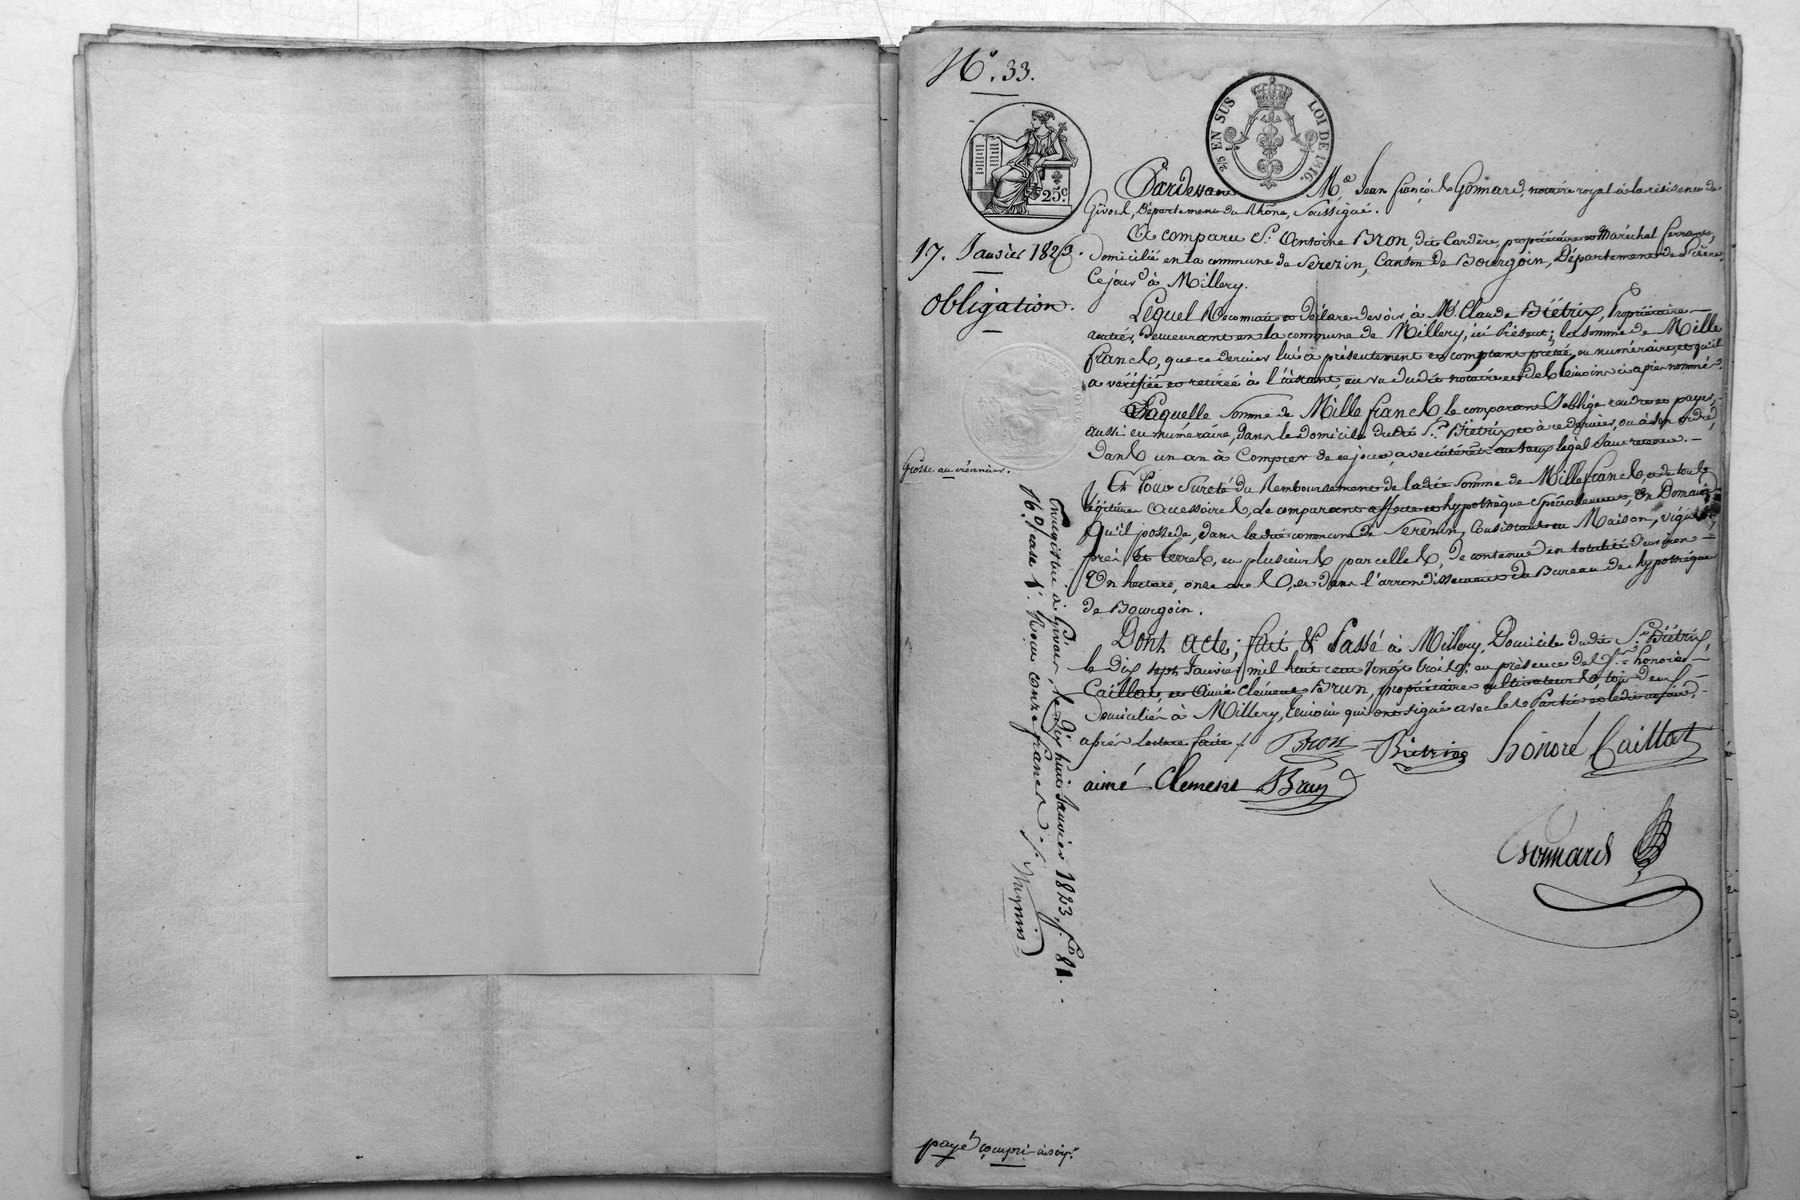 N.º 33.
25 EN SUS LOI DE 1816.
25.c
17. Janvier 1823.
Obligation.
Grosse au créancier.
Pardevant M.e Jean françois Gonnard, notaire royal à la résidence de
Givors, Département du Rhône, Soussigné.
A comparu S.r Antoine Bron, dit Cardère, propriétaire et Maréchal ferrant,
Domicilié en la commune de Serezin, Canton de Bourgoin, Département de l'isère,
Ce jourd à Millery.
Lequel Reconnait et déclare devoir, à M.r Claude Biétrix, Propriétaire
rentier, Demeurant en la commune de Millery, ici Présent; la Somme de Mille
francs, que ce dernier lui à présentement et comptant prêté, en numéraire, et qu'il
a vérifiée et retirée à l'instant, au vu dudit notaire et des témoins ci après nommés.
Laquelle Somme de Mille francs le comparant S'oblige rendre et payer,
aussi en numéraire, dans le domicile dudit S.r Biétrix et à ce dernier, ou à Son ordre,
Dans un an à Compter de ce jour, avec intérêts au taux légal Sans retenue.
Et Pour Sureté du Remboursement de ladite Somme de Mille francs, et de tous
légitimes accessoires, Le comparant affecte et hypothèque Spécialement, Un Domaine
Qu'il possede, dans ladite commune de Serezin, Consistant en Maison, vignes,
prés et terres, en plusieurs parcelles, de contenue en totalité d'environ
Un hectare, onze ares, et dans l'arrondissement du Bureau des hypothèques
de Bourgoin.
Dont acte; fait & Passé à Millery, Domicile dudit S.r Biétrix,
le dix sept Janvier mil huit cent vingt trois; en présence des S.rs honoré
Caillat, et Aimé Clément Brun, propriétaires cultivateurs, tous deux
Domiciliés à Millery, témoins qui ont signé avec les Parties et ledit notaire,
après Lecture faite ./.
Bron Biétrix honoré Caillat
aimé Clement Brun
Gonnard
Enregistré à Givors, le Dix huit Janvier 1823, f.o 81.
R.o Case 1.e Reçu onze francs.
payé compris inscrip.n